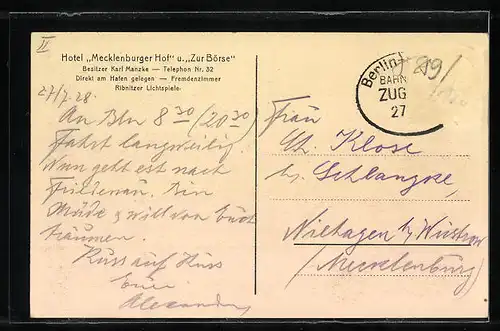 II
Hotel „Mecklenburger Hof" u. „Zur Börse"
Besitzer Karl Manzke — Telephon Nr. 32
Direkt am Hafen gelegen — Fremdenzimmer
Ribnitzer Lichtspiele
27/7.28.
An Bln 8 30 (20 30)
Fahrt langweilig.
Nun geht est nach
Friedenau. Bin
Müde & will von Euch
träumen.
Kuss auf Kuss
Euer
Alexander
Berlin
BAHN
ZUG
27
Frau
Ch. Klose
bei Schlange,
Niehagen b/ Wustrow
(Mecklenburg)